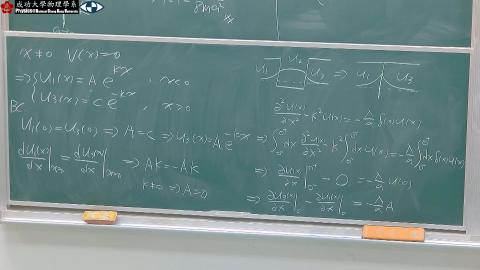 成功大學物理學系
8ma²
x≠0 V(x)=0
⇒ { U₁(x) = A e^{kx} , x<0
U₃(x) = c e^{-kx} , x>0
BC
U₁(0) = U₃(0) ⇒ A=c ⇒ U₃(x) = A e^{-kx}
dU₁(x)/dx|ₓ₌₀ = dU₃(x)/dx|ₓ₌₀ ⇒ Ak = -Ak
k≠0 ⇒ A=0
U₁ U₂ U₃ ⇒ U₁ U₃
∂²U(x)/∂x² - k²U(x) = -Δ/a δ(x)U(x)
⇒ ∫₀₋^{0⁺} dx ∂²U(x)/∂x² - k² ∫₀₋^{0⁺} dx U(x) = -Δ/a ∫₀₋^{0⁺} dx δ(x)U(x)
⇒ ∂U(x)/∂x|₀₋^{0⁺} - 0 = -Δ/a U(0)
⇒ ∂U₃(x)/∂x|₀ - ∂U₁(x)/∂x|₀ = -Δ/a A